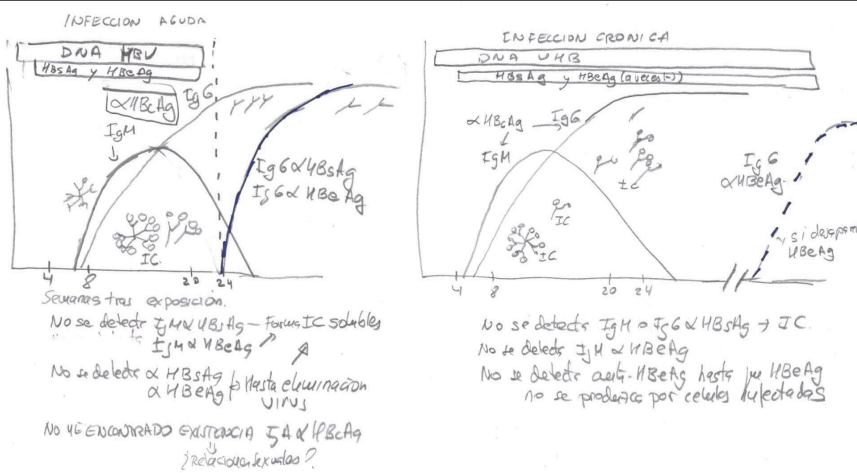 INFECCION AGUDA
DNA HBV
HBsAg y HBeAg
αHBcAg
IgG
IgM
IgG αHBsAg
IgG αHBeAg
IC
4 8 20 24
Semanas tras exposición.
No se detecta IgM αHBsAg – Forma IC solubles
IgM αHBeAg
No se detecta αHBsAg
αHBeAg Hasta eliminacion
VIRUS
NO HE ENCONTRADO EXISTENCIA IgA αHBcAg
¿Relaciones sexuales?
INFECCION CRONICA
DNA VHB
HBsAg y HBeAg (a veces (-))
αHBcAg → IgG
IgM
IC
IC
IC
IgG
αHBeAg
si desaparece
HBeAg
4 8 20 24
No se detecta IgM o IgG αHBsAg → IC.
No se detecta IgM αHBeAg
No se detecta anti-HBeAg hasta que HBeAg
no se produzca por celulas infectadas